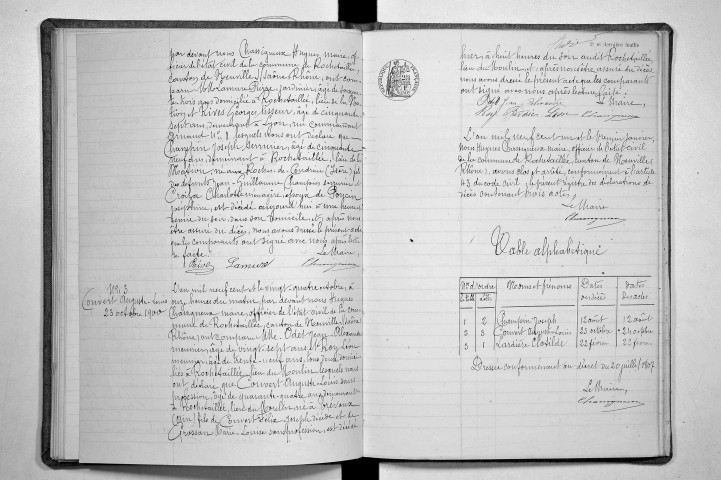 par devant nous Chassigneux Hugues, maire, of-
ficier de l'état civil de la commune de Rochetaillée,
canton de Neuville, (Saône, Rhône), ont com-
paru Pierre, jardinier, âgé de
domicilié à Rochetaillée, lieu de la
et Rives George tisseur, âgé de cinquante
sept ans, demeurant à Lyon, rue
Arnaud N° lesquels nous ont déclaré que
Champin Joseph Serrurier, âgé de cinquante
neuf ans, demeurant à Rochetaillée, lieu de la
né aux Roches de Condrieu (Isère) fils
des défunts Jean-Guillaume Champin serrurier et
Charlotte ménagère, époux de
Joséphine, est décédé aujourd'hui à une heure
demie du soir, dans son domicile, et après nous
être assuré du décès, nous avons dressé le présent acte
que les comparants ont signé avec nous après lecture
faite.
Le Maire,
Rives
N° 3
Couvert Auguste-Louis
23 octobre 1900
L'an mil neuf cent et le vingt-quatre octobre, à
heures du matin par devant nous Hugues
Chassigneux maire, officier de l'état civil de la com-
mune de Rochetaillée, canton de Neuville, (Saône
Rhône), ont comparu MM. Odet Jean
meunier âgé de vingt-sept ans et Roy Léon
meunier âgé de trente-neuf ans, tous deux domici-
liés à Rochetaillée, lieu du Moulin lesquels nous
ont déclaré que Couvert Auguste Louis sans
profession, âgé de quarante-quatre ans, demeurant
à Rochetaillée, lieu du Moulin né à Trévoux
(Ain) fils de Couvert Félix Joseph décédé et de
Marie-Louise sans profession, est décédé
2e et dernière feuille
hier, à huit heures du soir audit Rochetaillée,
lieu du Moulin, et après nous être assuré du décès,
nous avons dressé le présent acte que les comparants
ont signé avec nous après lecture faite.
Le Maire,
L'an mil neuf cent un et le premier janvier,
Nous Hugues Chassigneux maire, officier de l'état civil
de la commune de Rochetaillée, canton de Neuville,
(Rhône), avons clos et arrêté, conformément à l'article
43 du code civil, le présent registre des déclarations de
décès contenant trois actes.
Le Maire
Table alphabétique
Nos d'ordre Noms et prénoms Dates des décès Dates des actes
1 2 Champin Joseph 12 août 12 août
2 3 Couvert Auguste-Louis 23 octobre 24 octobre
3 1 Lardière Clotilde 22 février 22 février
Dressée conformément au décret du 20 juillet 1807
Le Maire,